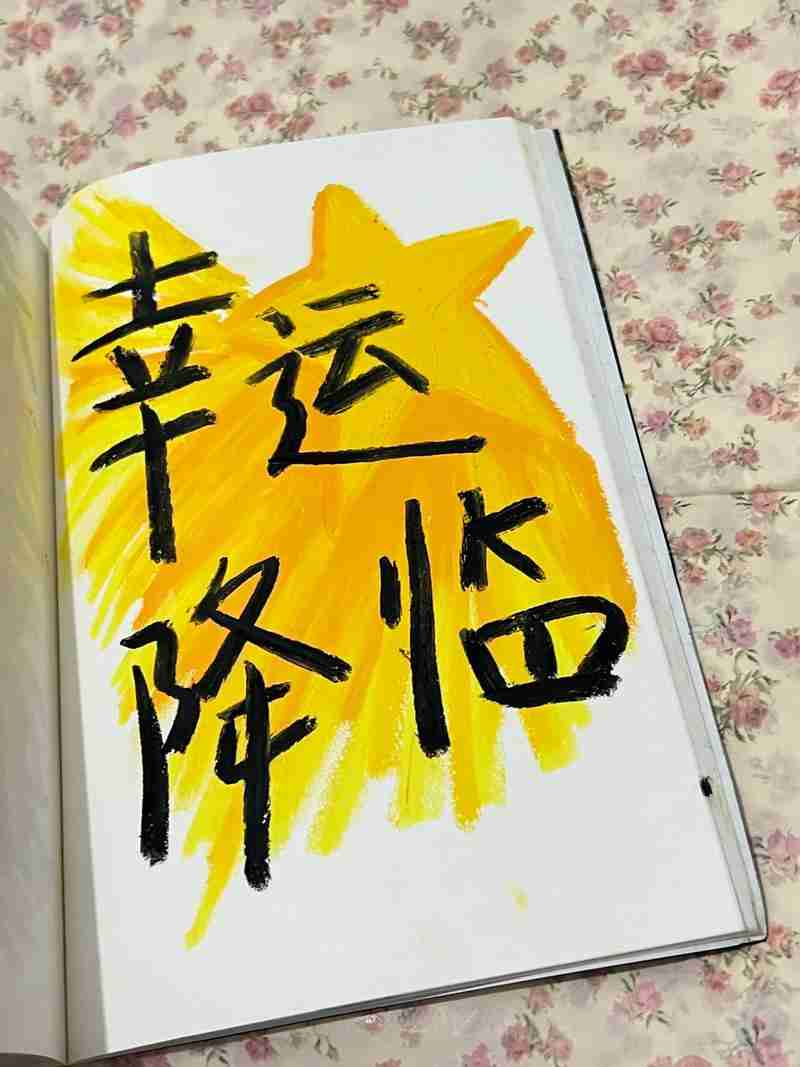 幸运
降临